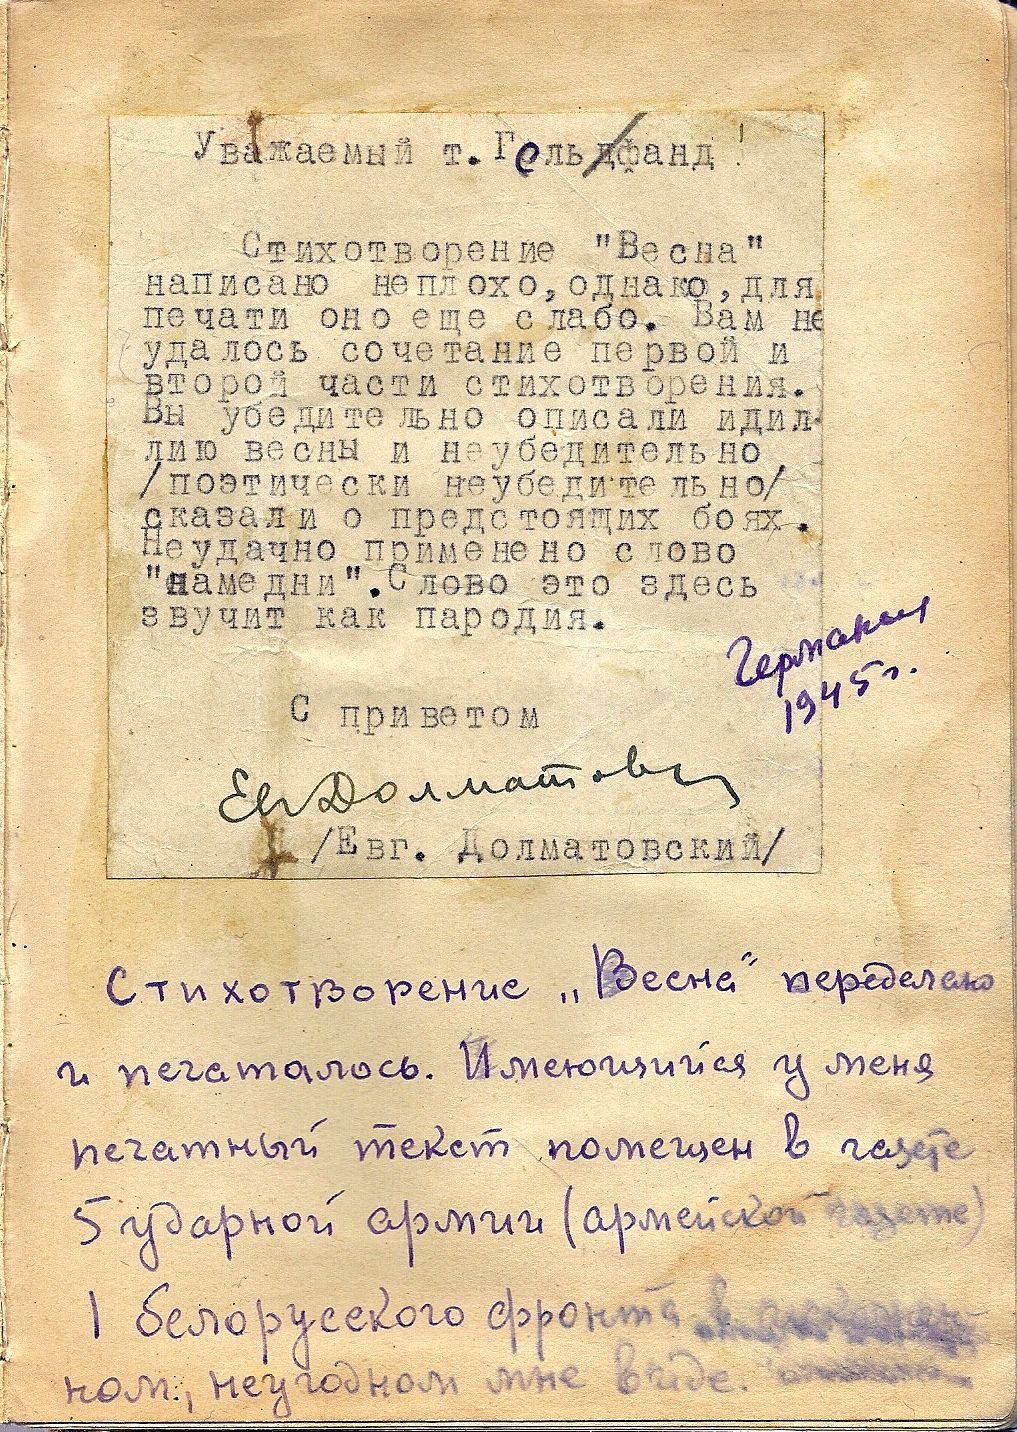 Уважаемый т. Гельфанд!
Стихотворение "Весна"
написано неплохо, однако, для
печати оно еще слабо. Вам не
удалось сочетание первой и
второй части стихотворения.
Вы убедительно описали идил-
лию весны и неубедительно
/поэтически неубедительно/
сказали о предстоящих боях.
Неудачно применено слово
"намедни". Слово это здесь
звучит как пародия.
Германия
1945 г.
С приветом
Евг Долматовск
/Евг. Долматовский/
Стихотворение „Весна" переделано
и печаталось. Имеющийся у меня
печатный текст помещен в газете
5 ударной армии (армейской газете)
1 белорусского фронта в искажен-
ном, неугодном мне виде.